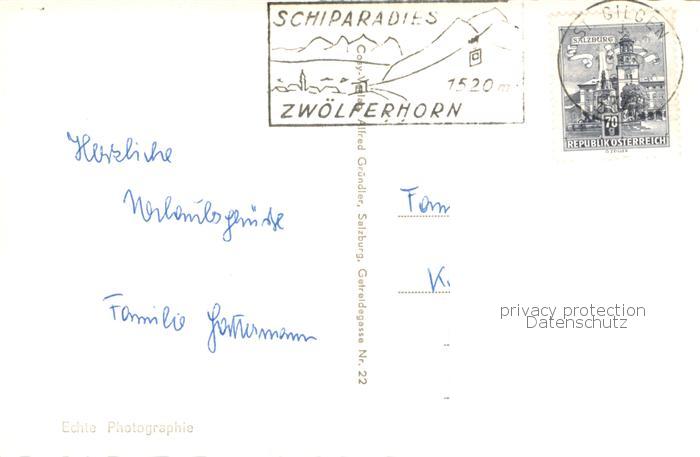 SCHIPARADIES
1520 m
ZWÖLFERHORN
ST. GILGEN
SALZBURG
70 g
REPUBLIK ÖSTERREICH
Herzliche
Urlaubsgrüße
Familie
Fam
K
Alfred Gründler, Salzburg, Getreidegasse Nr. 22
privacy protection
Datenschutz
Echte Photographie